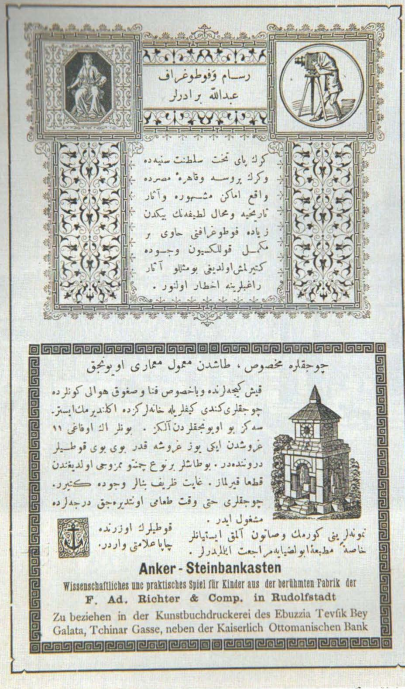 رسام وفوطوغراف
عبدالله برادرلر
كرك پای تخت سلطنت سنیه‌ده
وكرك بروسه وقاهرهٔ مصرده
واقع اماكن مشهوره وآثار
تاریخیه ومحال لطیفه‌نك بیكدن
زیاده فوطوغرافنی حاوی بر
مكمل قوللكسیون وجوده
كتیرلمش اولدیغی بومثللو آثار
راغبلرینه اخطار اولنور .
چوجقلره مخصوص ، طاشدن معمول معماری اویونجق
قیش كیجه‌لرنده وباخصوص فنا وصغوق هوالی كونلرده
چوجقلری كندی كیفلریله خانه‌لرده اكلندیرمك ایسترـ
سه‌كز بو اویونجقلردن آلكز . بونلر اك اوفاغی ۱۱
غروشدن ایكی یوز غروشه قدر بوی بوی قوطیلر
درونده‌در . بوطاشلر برنوع چمنتو ممزوجی اولدیغندن
قطعا قیرلماز . غایت ظریف بنالر وجوده كتیرر .
چوجقلری حتی وقت طعامی اونتدیره‌جق درجه‌لرده
مشغول ایدر .
قوطیلرك اوزرنده
چاپا علامتی واردر .
نمونه‌لرینی كورمك وصاتون آلمق ایستیانلر
مطبعهٔ ابوالضیایه مراجعت ایتملیدرلر .
Anker - Steinbankasten
Wissenschaftliches unc praktisches Spiel für Kinder aus der berühmten Fabrik der
F. Ad. Richter & Comp. in Rudolfstadt
Zu beziehen in der Kunstbuchdruckerei des Ebuzzia Tevfik Bey
Galata, Tchinar Gasse, neben der Kaiserlich Ottomanischen Bank